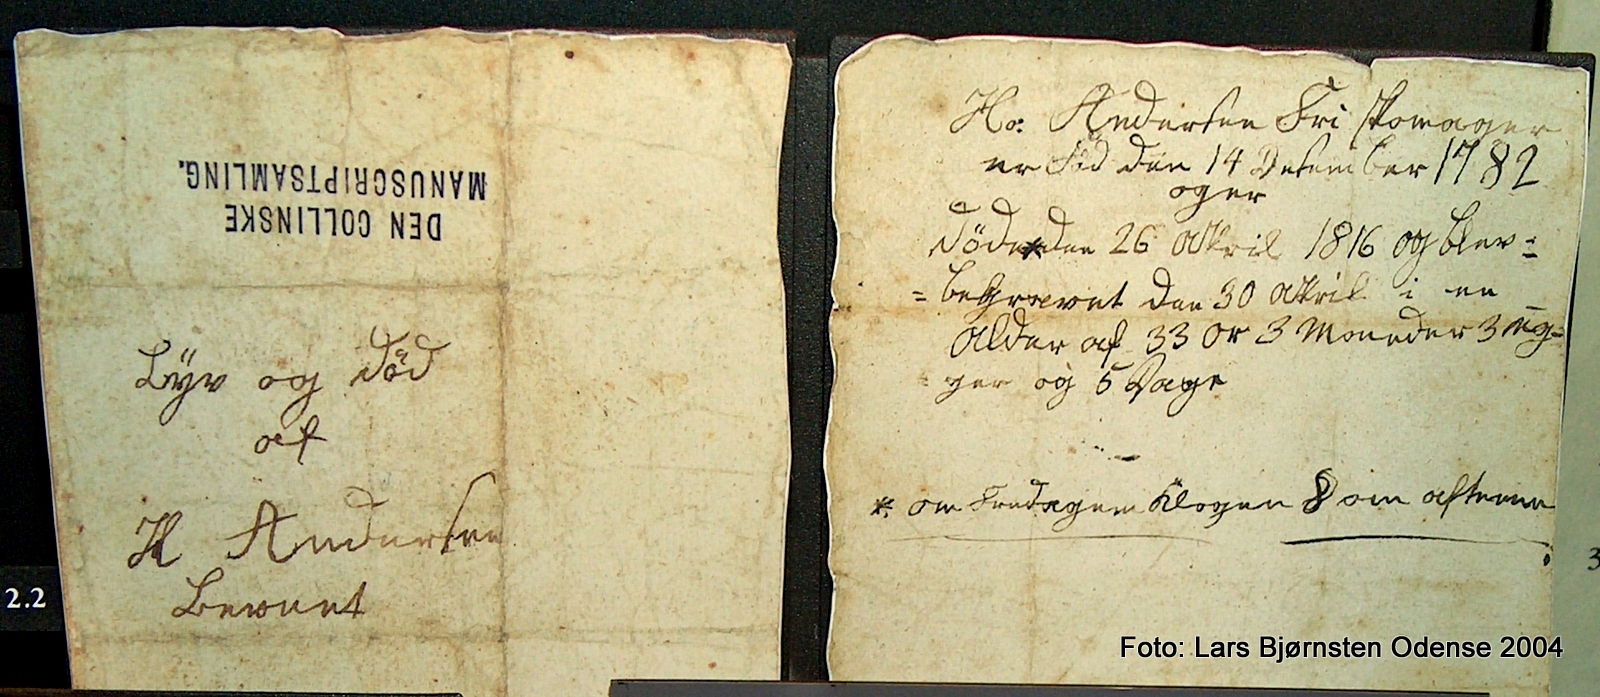 DEN COLLINSKE
MANUSCRIPTSAMLING.
Lÿv og död
af
H Andersen
2.2
Ho: Andersen Fri skomager
er föd den 14 Desember 1782
oger
döde*den 26 April 1816 og blev =
= begravet den 30 April i en
Alder af 33 or 3 Moneder 3 ug=
ger og 5 Dage
* om Fredagen Klogen 8 om aftenen
3
Foto: Lars Bjørnsten Odense 2004